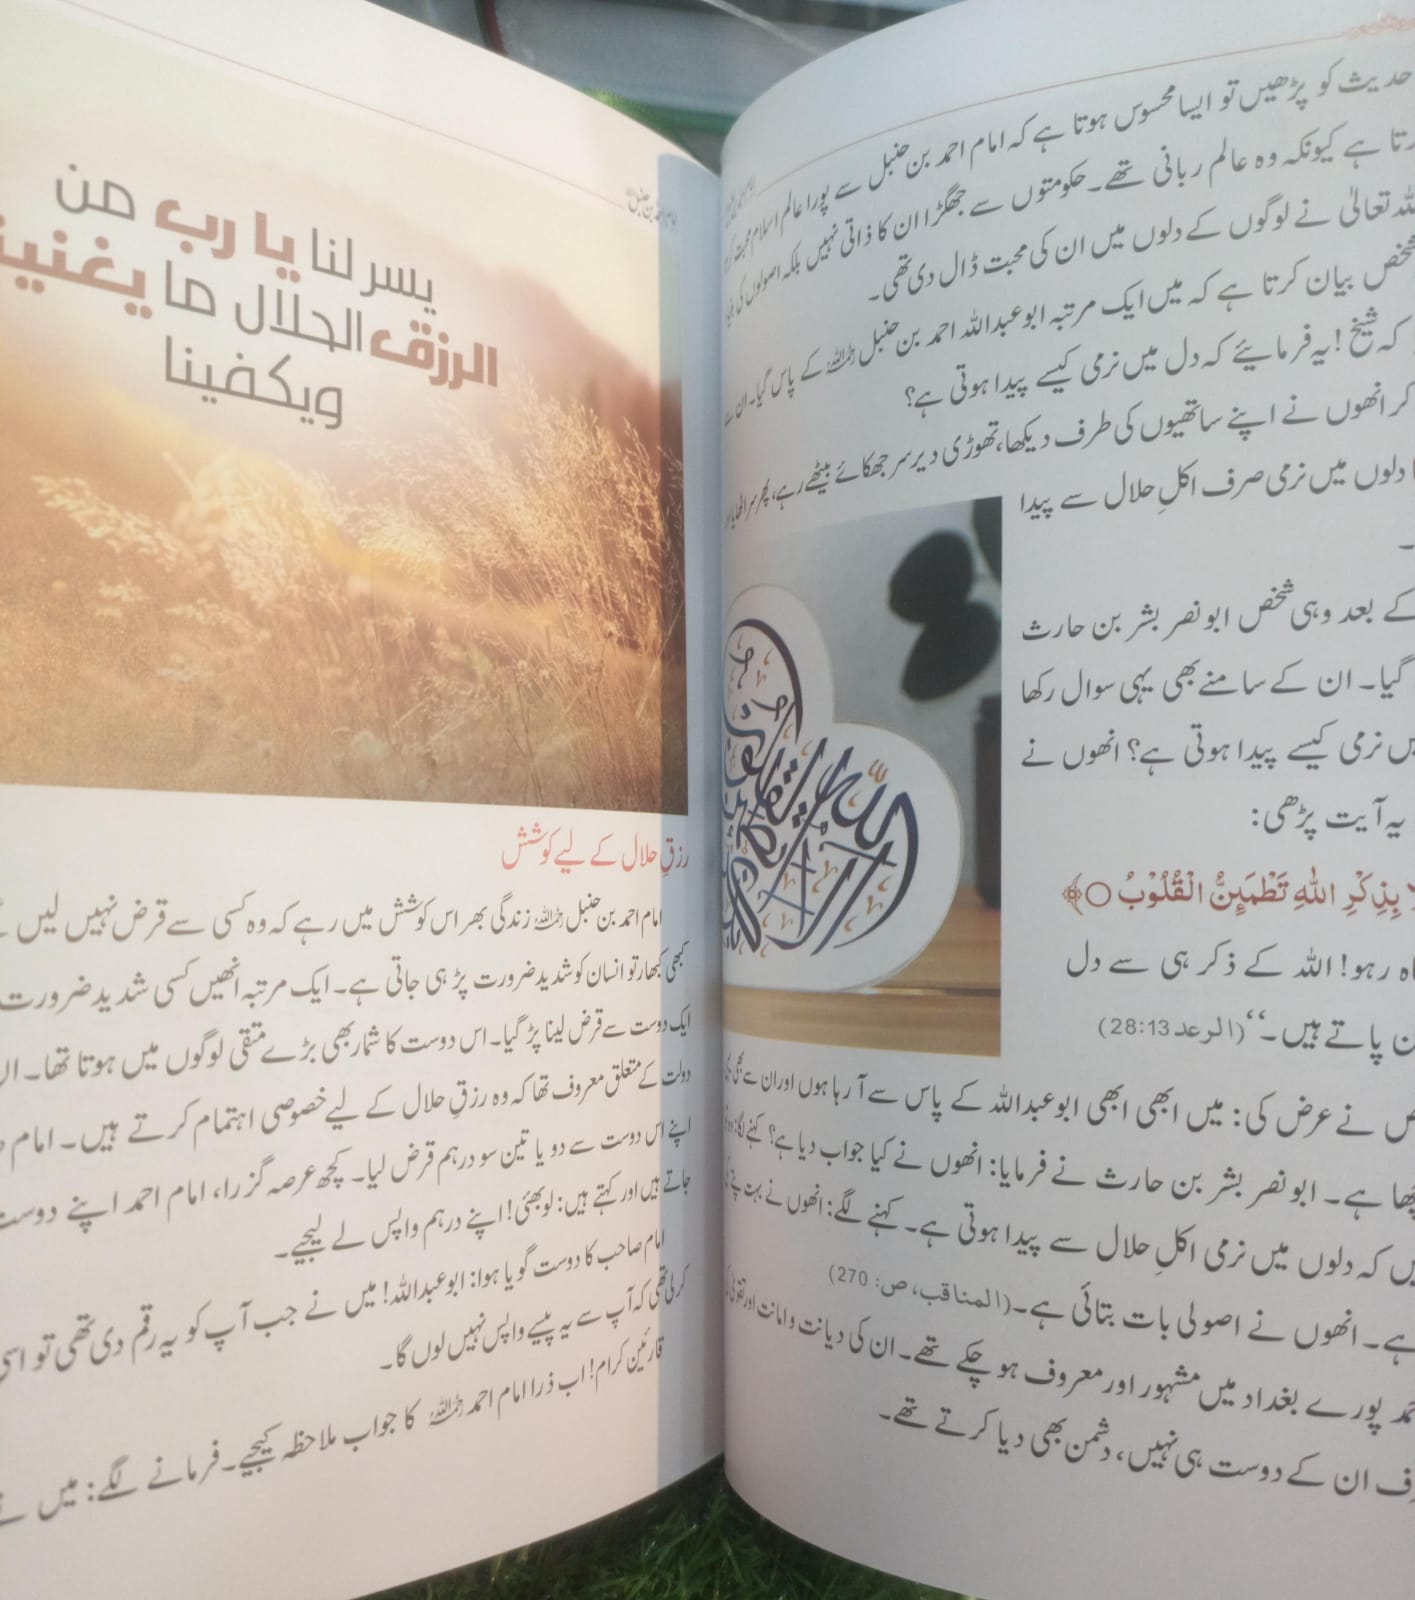 حدیث کو پڑھیں تو ایسا محسوس ہوتا ہے کہ امام احمد بن حنبل سے پورا عالم اسلام محبت
ہے کیونکہ وہ عالم ربانی تھے۔ حکومتوں سے جھگڑا ان کا ذاتی نہیں بلکہ اصولوں کی
تعالیٰ نے لوگوں کے دلوں میں ان کی محبت ڈال دی تھی۔
شخص بیان کرتا ہے کہ میں ایک مرتبہ ابو عبداللہ احمد بن حنبل رحمہ اللہ کے پاس گیا۔ ان سے
کہ شیخ! یہ فرمایئے کہ دل میں نرمی کیسے پیدا ہوتی ہے؟
کر انھوں نے اپنے ساتھیوں کی طرف دیکھا، تھوڑی دیر سر جھکائے بیٹھے رہے، پھر سر اٹھایا
دلوں میں نرمی صرف اکلِ حلال سے پیدا
کے بعد وہی شخص ابو نصر بشر بن حارث
گیا۔ ان کے سامنے بھی یہی سوال رکھا
نرمی کیسے پیدا ہوتی ہے؟ انھوں نے
یہ آیت پڑھی:
بِذِكْرِ اللّٰهِ تَطْمَىِٕنُّ الْقُلُوْبُ ○﴾
رہو! اللہ کے ذکر ہی سے دل
پاتے ہیں۔‘‘ (الرعد 28:13)
نے عرض کی: میں ابھی ابھی ابو عبداللہ کے پاس سے آ رہا ہوں اور ان سے بھی یہی
ہے۔ ابو نصر بشر بن حارث نے فرمایا: انھوں نے کیا جواب دیا ہے؟ کہنے لگا:
کہ دلوں میں نرمی اکلِ حلال سے پیدا ہوتی ہے۔ کہنے لگے: انھوں نے بہت
ہے۔ انھوں نے اصولی بات بتائی ہے۔ (المناقب، ص: 270)
پورے بغداد میں مشہور اور معروف ہو چکے تھے۔ ان کی دیانت و امانت اور تقویٰ
ان کے دوست ہی نہیں، دشمن بھی دیا کرتے تھے۔
امام احمد بن حنبل
يسر لنا يا رب من
الرزق الحلال ما يغنينا
ويكفينا
رزقِ حلال کے لیے کوشش
امام احمد بن حنبل رحمہ اللہ زندگی بھر اس کوشش میں رہے کہ وہ کسی سے قرض نہیں لیں
کبھی کبھار تو انسان کو شدید ضرورت پڑ ہی جاتی ہے۔ ایک مرتبہ انھیں کسی شدید ضرورت
ایک دوست سے قرض لینا پڑ گیا۔ اس دوست کا شمار بھی بڑے متقی لوگوں میں ہوتا تھا۔
دولت کے متعلق معروف تھا کہ وہ رزقِ حلال کے لیے خصوصی اہتمام کرتے ہیں۔ امام
اپنے اس دوست سے دو یا تین سو درہم قرض لیا۔ کچھ عرصہ گزرا، امام احمد اپنے دوست
جاتے ہیں اور کہتے ہیں: لو بھئی! اپنے درہم واپس لے لیجیے۔
امام صاحب کا دوست گویا ہوا: ابو عبداللہ! میں نے جب آپ کو یہ رقم دی تھی تو اسی
کر لی تھی کہ آپ سے یہ پیسے واپس نہیں لوں گا۔
قارئین کرام! اب ذرا امام احمد رحمہ اللہ کا جواب ملاحظہ کیجیے۔ فرمانے لگے: میں نے